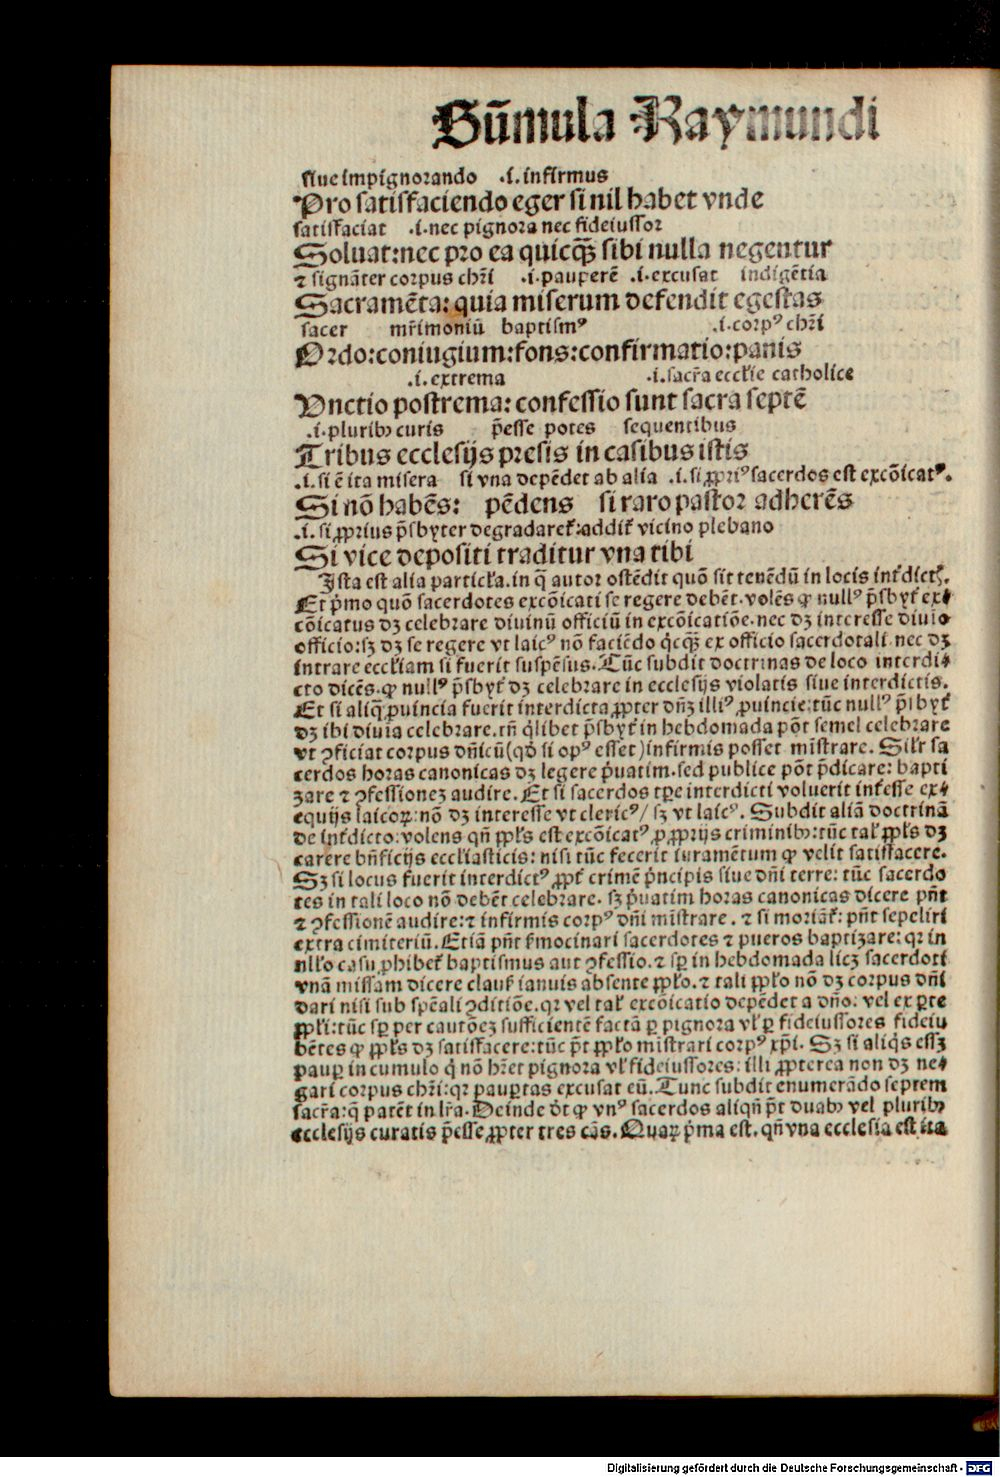 Sūmula Raymundi
siue impignorando .i. infirmus
Pro satisfaciendo eger si nil habet vnde
satisfaciat .i. nec pignora nec fideiussor
Soluat: nec pro ea quicqꝫ sibi nulla negentur
⁊ signāter corpus chr̄i .i. pauperē .i. excusat indigētia
Sacramēta: quia miserum defendit egestas
sacer mr̄imoniū baptismꝰ .i. corpꝰ chr̄i
Ordo: coniugium: fons: confirmatio: panis
.i. extrema .i. sacr̄a eccl̓ie catholice
Vnctio postrema: confessio sunt sacra septē
.i. pluribꝫ curis p̄esse potes sequentibus
Tribus ecclesijs presis in casibus istis
.i. si ē ita misera si vna depēdet ab alia .i. si ꝓpriꝰ sacerdos est excōicatꝰ.
Si nō habēs: pēdens si raro pastor adherēs
.i. si ꝓprius p̄sbyter degradaret̓: addit̓ vicino plebano
Si vice depositi traditur vna tibi
Ista est alia particl̓a. in q̄ autor ostēdit quō sit tenēdū in locis int̓dict̓.
Et p̓mo quō sacerdotes excōicati se regere debēt. volēs ꝙ nullꝰ p̄sbyt̓ ex⸗
cōicatus dꝫ celebrare diuinū officiū in excōicatiōe. nec dꝫ interesse diuio
officio: sꝫ dꝫ se regere vt laicꝰ nō faciēdo q̓cqꝫ ex officio sacerdotali. nec dꝫ
intrare eccl̓iam si fuerit suspēsus. Tūc subdit doctrinas de loco interdi⸗
cto dicēs. ꝙ nullꝰ p̄sbyt̓ dꝫ celebrare in ecclesijs violatis siue interdictis.
Et si aliq̄ ꝓuincia fuerit interdicta ꝓpter dn̄ꝫ illiꝰ ꝓuincie: tūc nullꝰ p̄sbyt̓
dꝫ ibi diuīa celebrare. tn̄ q̓libet p̄sbyt̓ in hebdomada pōt semel celebrare
vt ꝯficiat corpus dn̄icū (qd̓ si opꝰ esset) infirmis posset mīstrare. Sil̓r sa
cerdos horas canonicas dꝫ legere p̓uatim. sed publice pōt p̄dicare: bapti
zare ⁊ ꝯfessioneꝫ audire. Et si sacerdos tꝑe interdicti voluerit int̓esse ex⸗
equijs laicoꝝ: nō dꝫ interesse vt clericꝰ/ sꝫ vt laicꝰ. Subdit aliā doctrinā
de int̓dicto: volens qn̄ ppl̓s est excōicatꝰ ꝓ ꝓprijs criminibꝫ: tūc tal̓ ppl̓s dꝫ
carere bn̄ficijs eccl̓iasticis: nisi tūc fecerit iuramētum ꝙ velit satisfacere.
Sꝫ si locus fuerit interdictꝰ ꝓpt̓ crimē p̓ncipis siue dn̄i terre: tūc sacerdo
tes in tali loco nō debēt celebrare. sꝫ p̓uatim horas canonicas dicere pn̄t
⁊ ꝯfessionē audire: ⁊ infirmis corpꝰ dn̄i mīstrare. ⁊ si moriāt̓: pn̄t sepeliri
extra cimiteriū. Etiā pn̄t s̓mocinari sacerdotes ⁊ pueros baptizare: qꝛ in
nll̓o casu ꝓhibet̓ baptismus aut ꝯfessio. ⁊ sꝑ in hebdomada licꝫ sacerdoti
vnā missam dicere claus̓ ianuis absente ppl̓o. ⁊ tali ppl̓o nō dꝫ corpus dn̄i
dari nisi sub spēali ꝯditiōe. qꝛ vel tal̓ excōicatio depēdet a dn̄o: vel ex ꝑte
ppl̓i: tūc sꝑ per cautōeꝫ sufficientē factā ꝑ pignora vl̓ ꝑ fideiussores fideiu
bētes ꝙ ppl̓s dꝫ satisfacere: tūc p̄t ppl̓o mīstrari corpꝰ xp̄i. Sꝫ si aliq̓s essꝫ
pauꝑ in cumulo q̓ nō hr̄et pignora vl̓ fideiussores: illi ꝓpterea non dꝫ ne⸗
gari corpus chr̄i: qꝛ pauꝑtas excusat eū. Tunc subdit enumerādo septem
sacr̄a: q̄ patēt in lr̄a. Deinde d̓t ꝙ vnꝰ sacerdos aliqn̄ p̄t duabꝫ vel pluribꝫ
ecclesijs curatis p̄esse ꝓpter tres cās. Quaꝝ p̓ma est. qn̄ vna ecclesia est ita
Digitalisierung gefördert durch die Deutsche Forschungsgemeinschaft - DFG